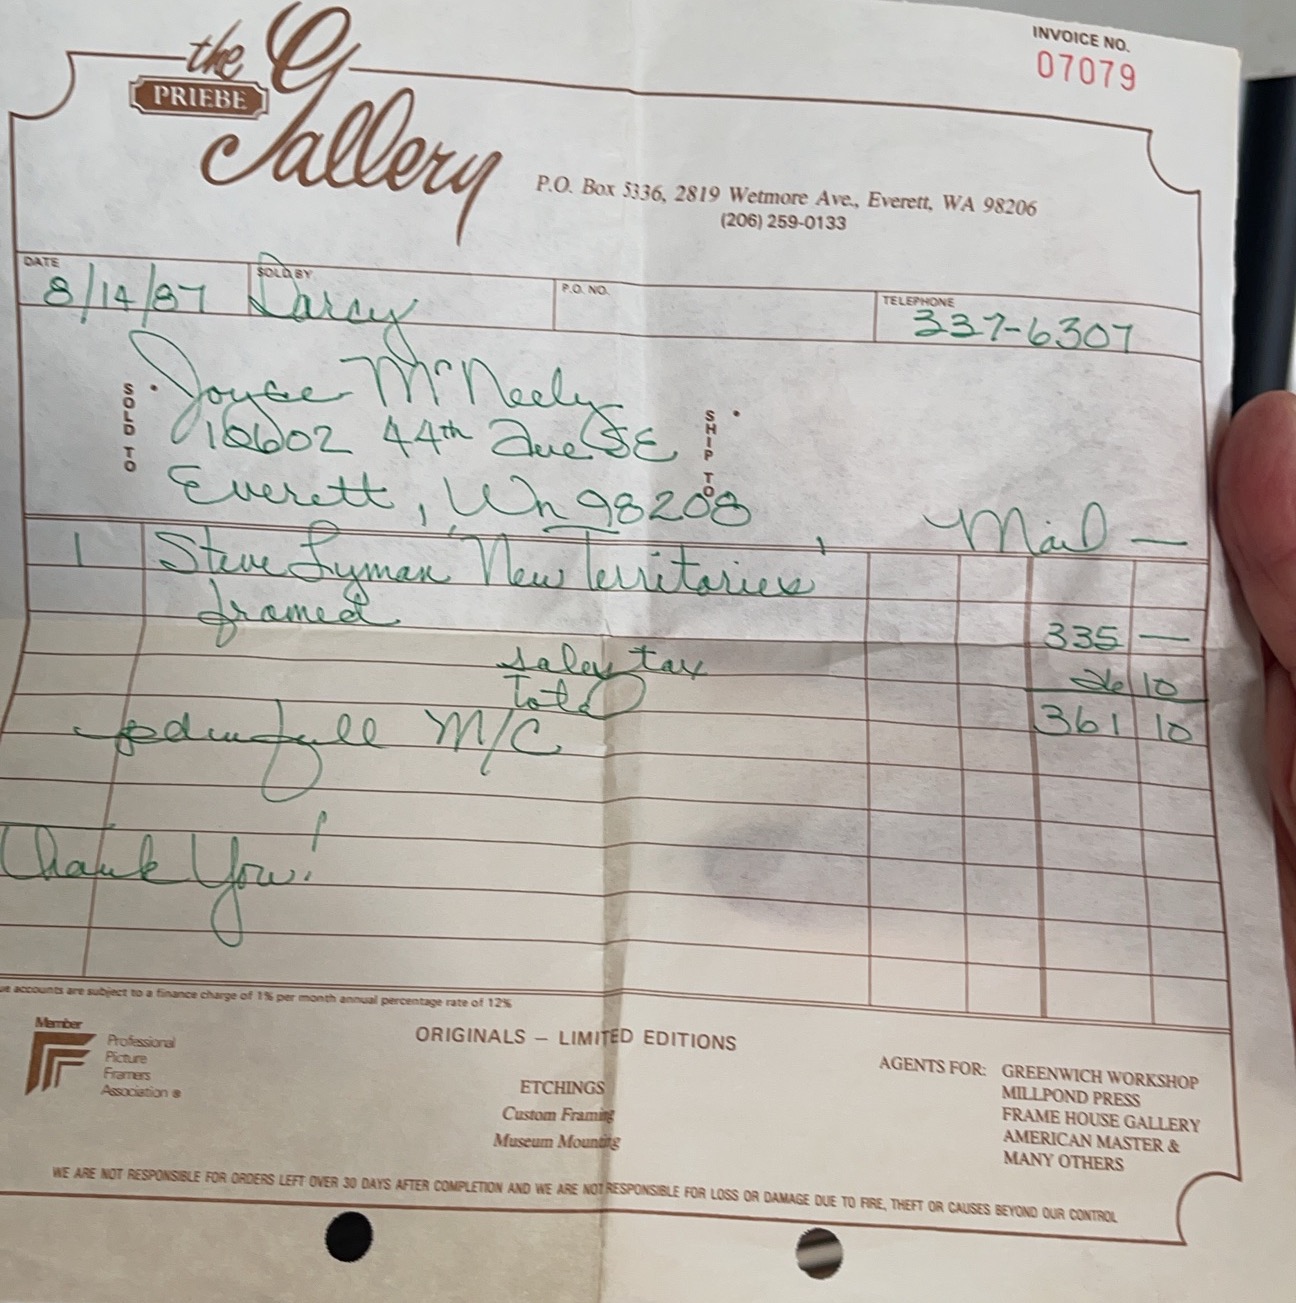 the
PRIEBE
Gallery
INVOICE NO.
07079
P.O. Box 5336, 2819 Wetmore Ave., Everett, WA 98206
(206) 259-0133
DATE
8/14/87
SOLD BY
Darcy
P.O. NO.
TELEPHONE
337-6307
SOLD TO
Joyce McNeely
44th Ave SE
Everett, Wn 98208
SHIP TO
Mail —
1 Steve Lyman "New Territories"
framed 335 —
sales tax 26 10
Total 361 10
pd in full M/C
Thank You!
accounts are subject to a finance charge of 1% per month annual percentage rate of 12%
Member
Professional
Picture
Framers
Association ®
ORIGINALS — LIMITED EDITIONS
ETCHINGS
Custom Framing
Museum Mounting
AGENTS FOR: GREENWICH WORKSHOP
MILLPOND PRESS
FRAME HOUSE GALLERY
AMERICAN MASTER &
MANY OTHERS
WE ARE NOT RESPONSIBLE FOR ORDERS LEFT OVER 30 DAYS AFTER COMPLETION AND WE ARE NOT RESPONSIBLE FOR LOSS OR DAMAGE DUE TO FIRE, THEFT OR CAUSES BEYOND OUR CONTROL